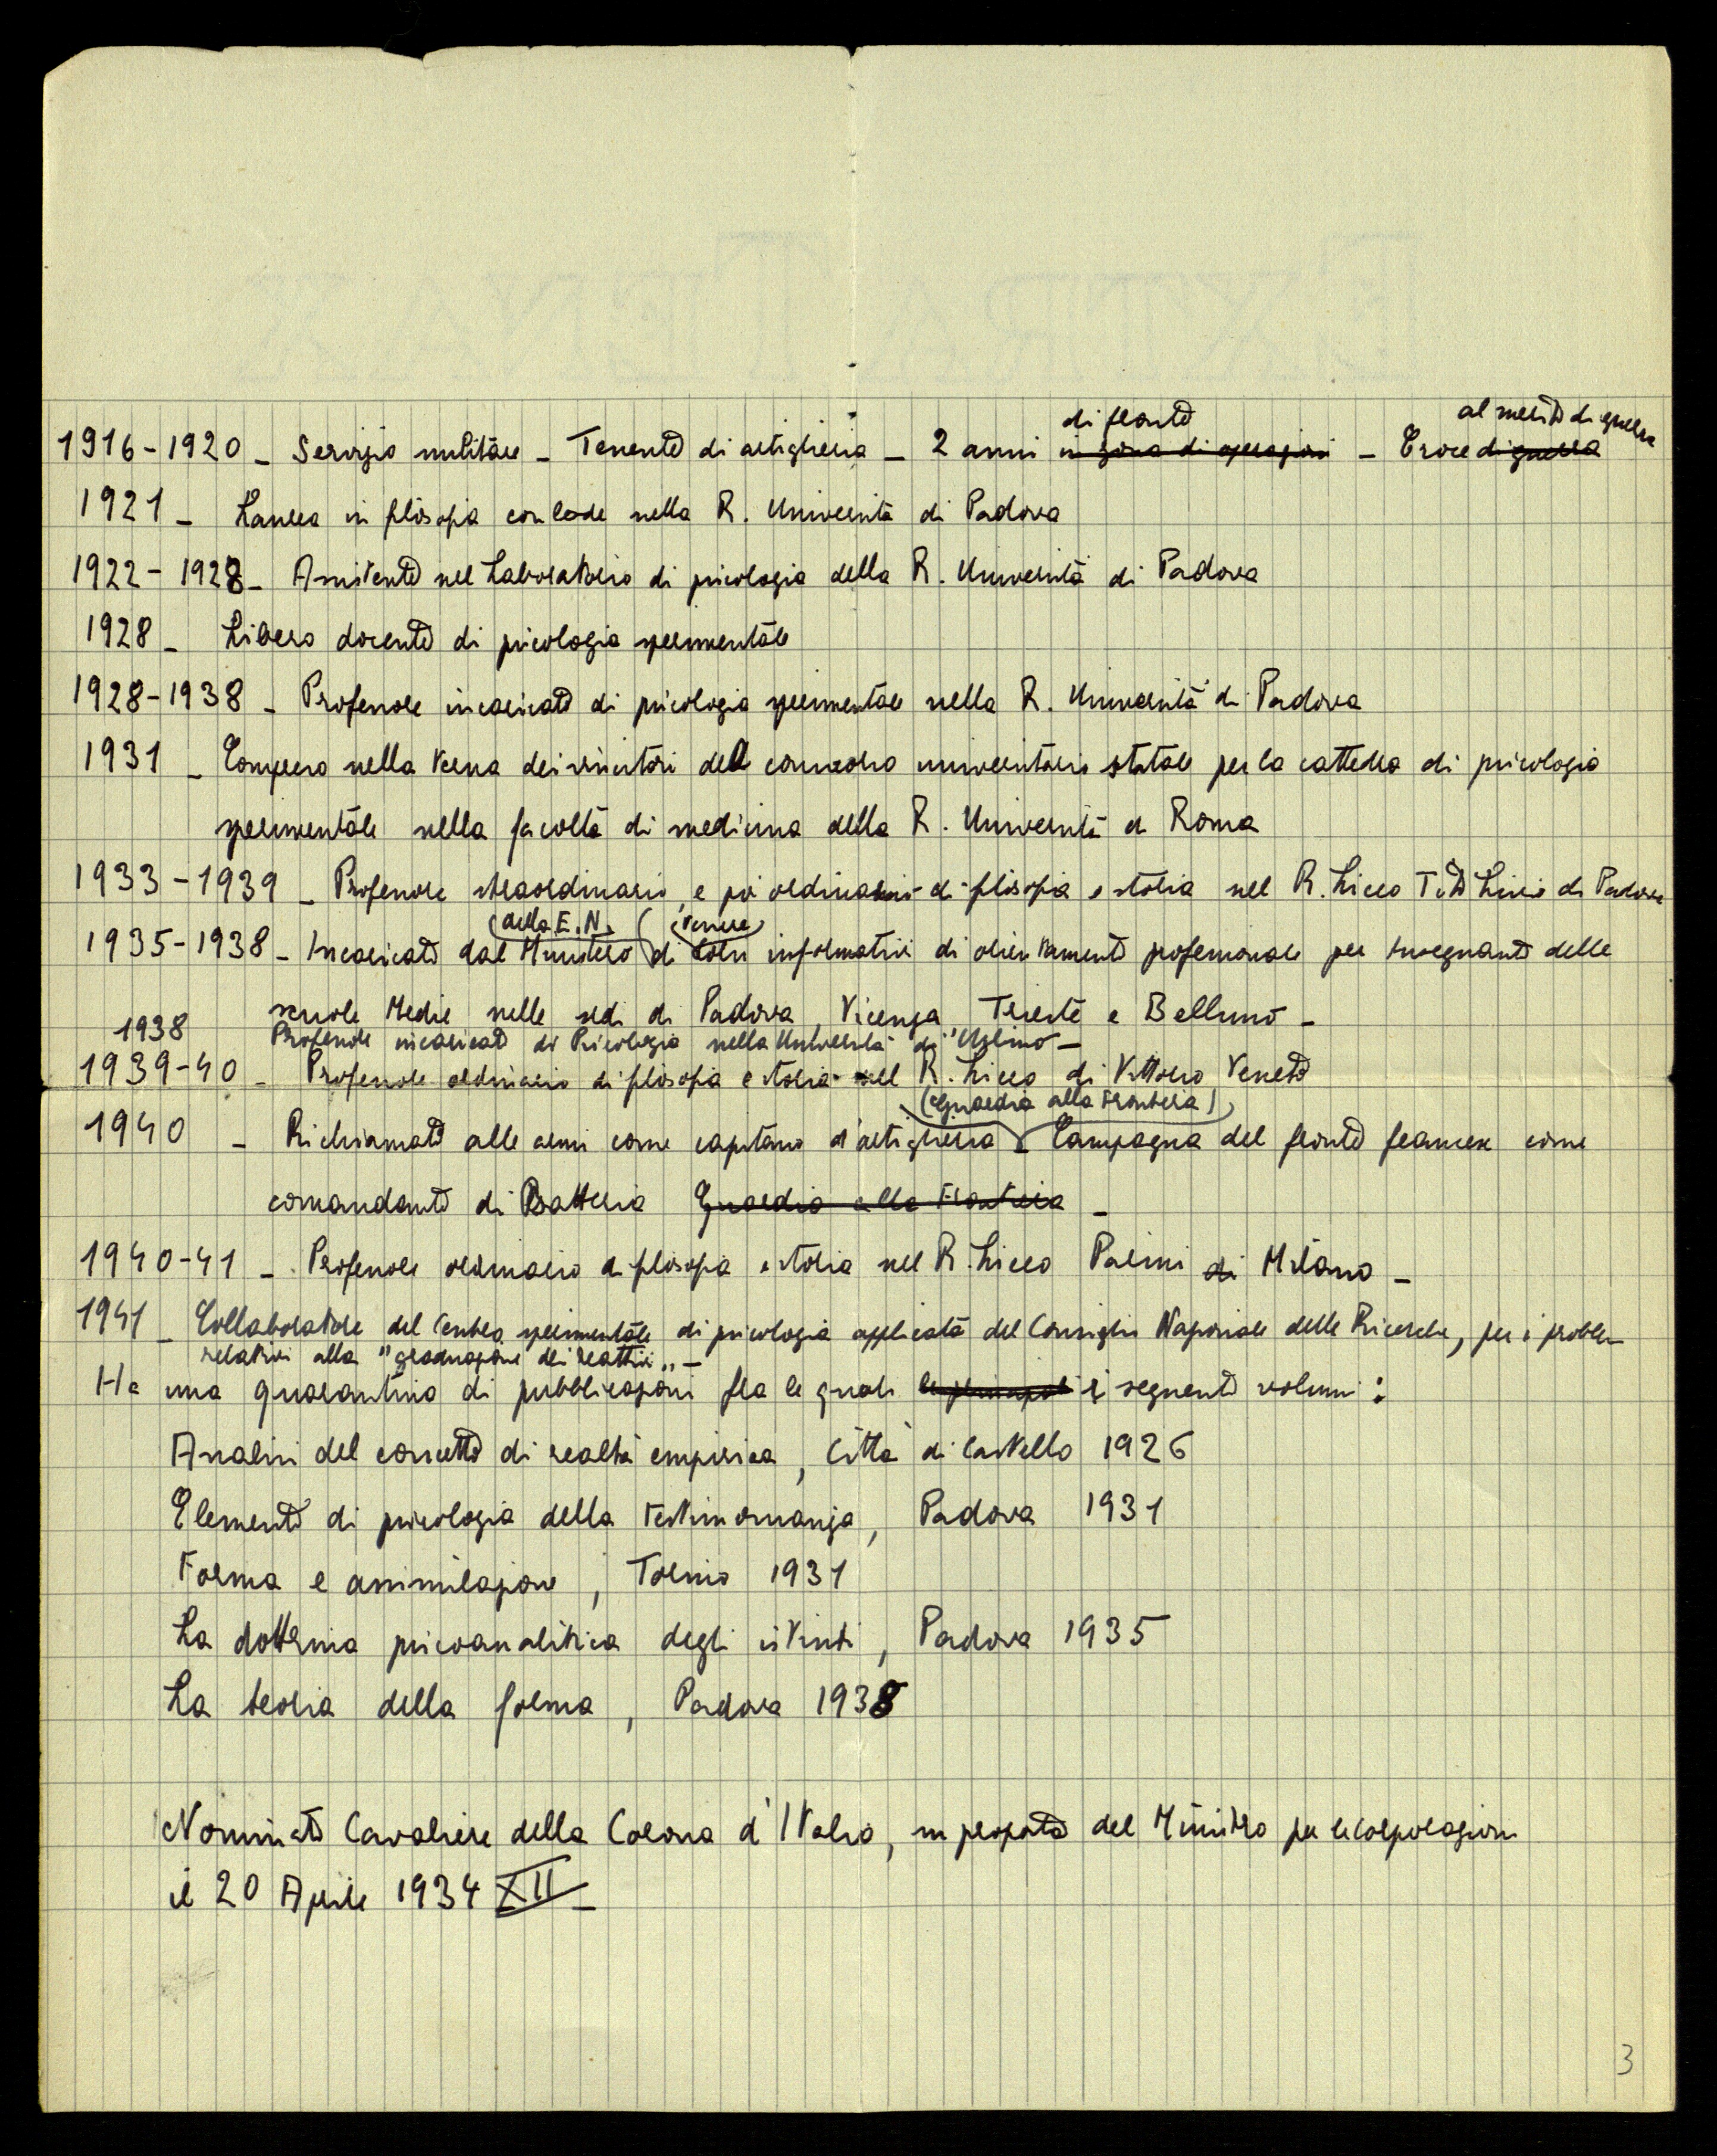 di fronte al merito di guerra
1916-1920 - Servizio militare - Tenente di artiglieria - 2 anni in zona di operazioni - Croce di guerra
1921 - Laurea in filosofia con lode nella R. Università di Padova
1922-1928 - Assistente nel Laboratorio di psicologia della R. Università di Padova
1928 - Libero docente di psicologia sperimentale
1928-1938 - Professore incaricato di psicologia sperimentale nella R. Università di Padova
1931 - Compreso nella terna dei vincitori del concorso universitario statale per la cattedra di psicologia
sperimentale nella facoltà di medicina della R. Università di Roma
1933-1939 - Professore straordinario, e poi ordinario di filosofia e storia nel R. Liceo Tito Livio di Padova
(della E.N.) (tenere)
1935-1938 - Incaricato dal Ministero di corsi informativi di orientamento professionale per insegnanti delle
scuole Medie nelle sedi di Padova, Vicenza, Trieste e Belluno -
1938 Professore incaricato di Psicologia nella Università di Urbino -
1939-40 - Professore ordinario di filosofia e storia nel R. Liceo di Vittorio Veneto
(Guardia alla Frontiera)
1940 - Richiamato alle armi come capitano d'artiglieria Campagna del fronte francese come
comandante di Batteria Guardia alla Frontiera -
1940-41 - Professore ordinario di filosofia e storia nel R. Liceo Parini di Milano -
1941 - Collaboratore del Centro sperimentale di psicologia applicata del Consiglio Nazionale delle Ricerche, per i problemi
relativi alla "graduazione dei reattivi" -
Ha una quarantina di pubblicazioni fra le quali le principali i seguenti volumi:
Analisi del concetto di realtà empirica, Città di Castello 1926
Elementi di psicologia della testimonianza, Padova 1931
Forma e assimilazione, Torino 1931
La dottrina psicoanalitica degli istinti, Padova 1935
La teoria della forma, Padova 1938
Nominato Cavaliere della Corona d'Italia, su proposta del Ministro per le Corporazioni
il 20 Aprile 1934 XII -
3